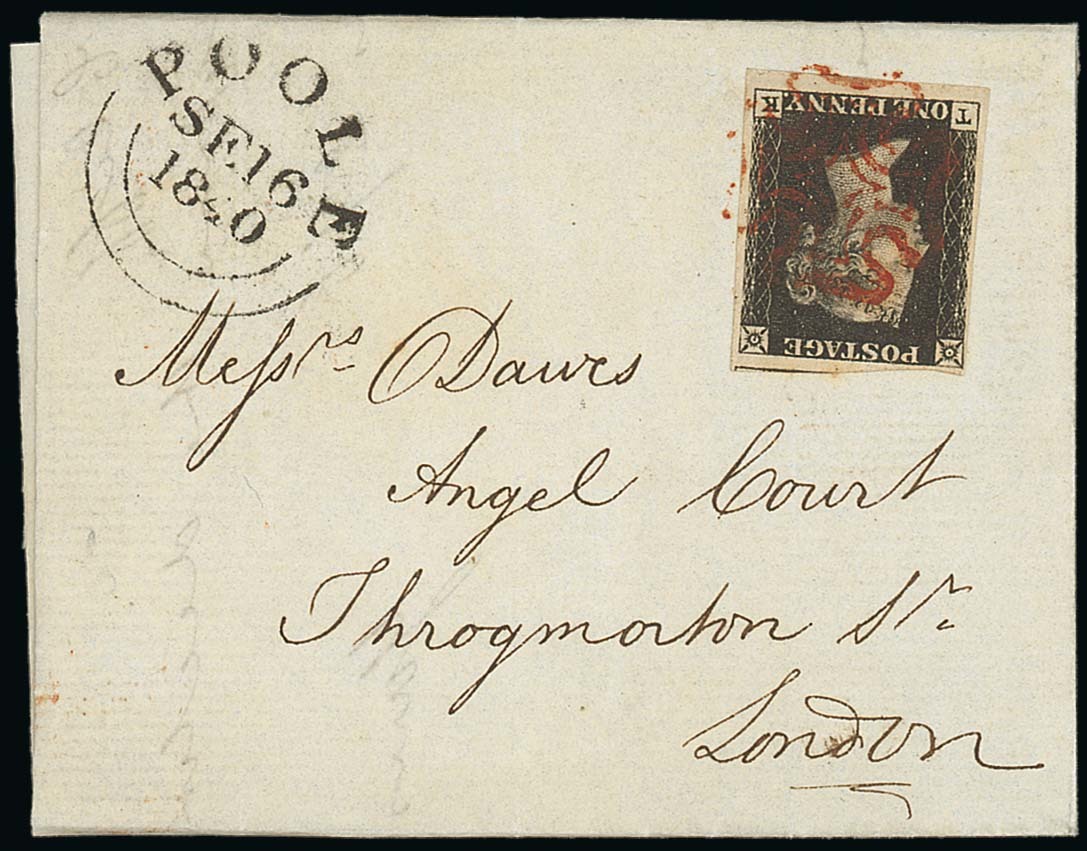 POOLE
SE 16
1840
POSTAGE
T K
ONE PENNY
Messrs Dawes
Angel Court
Throgmorton St.
London